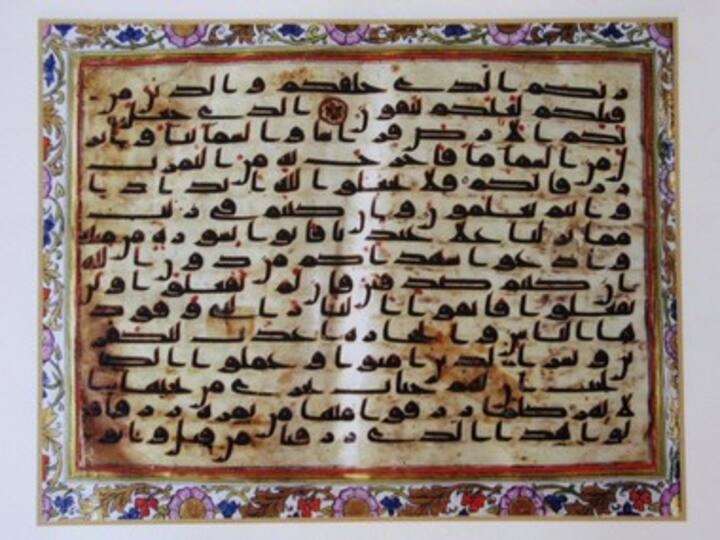 ربكم الذي خلقكم والذين من
قبلكم لعلكم تتقون الذي جعل
لكم الارض فرشا والسما بنا وان
زل من السما ما فاخرج به من الثمرت
رزقا لكم فلا تجعلوا لله اندادا
وانتم تعلمون وان كنتم في ريب
مما نزلنا على عبدنا فاتوا بسورة من مثله
وادعوا شهداكم من دون الله
ان كنتم صدقين فان لم تفعلوا ولن
تفعلوا فاتقوا النار التي وقود
ها الناس والحجارة اعدت للكفر
ين وبشر الذين امنوا وعملوا الص
لحت ان لهم جنت تجري من تحتها ا
لانهر كلما رزقوا منها من ثمرة رزقا قا
لوا هذا الذي رزقنا من قبل واتوا